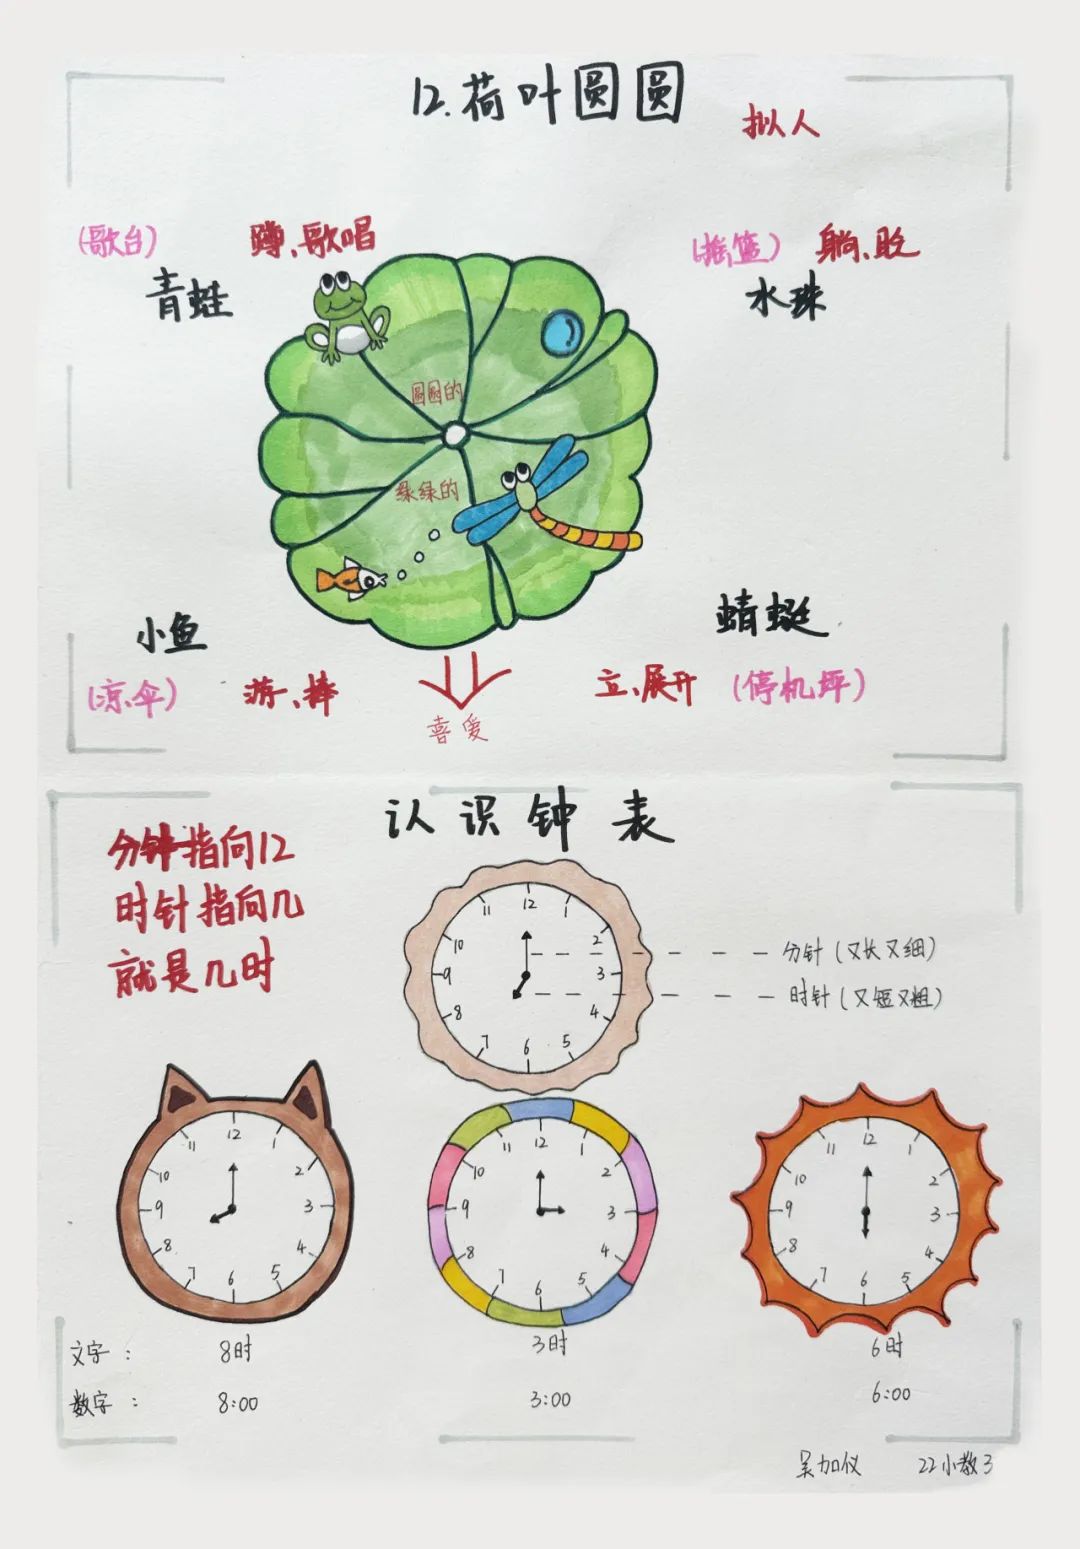 12.荷叶圆圆
拟人
(歌台) 蹲、歌唱
青蛙
(摇篮) 躺、眨
水珠
圆圆的
绿绿的
小鱼
(凉伞) 游、捧
蜻蜓
立、展开 (停机坪)
喜爱
认识钟表
分钟指向12
时针指向几
就是几时
12 1 2 3 4 5 6 7 8 9 10 11
分针(又长又细)
时针(又短又粗)
12 1 2 3 4 5 6 7 8 9 10 11
12 1 2 3 4 5 6 7 8 9 10 11
12 1 2 3 4 5 6 7 8 9 10 11
文字: 8时 3时 6时
数字: 8:00 3:00 6:00
吴加仪 22小教3